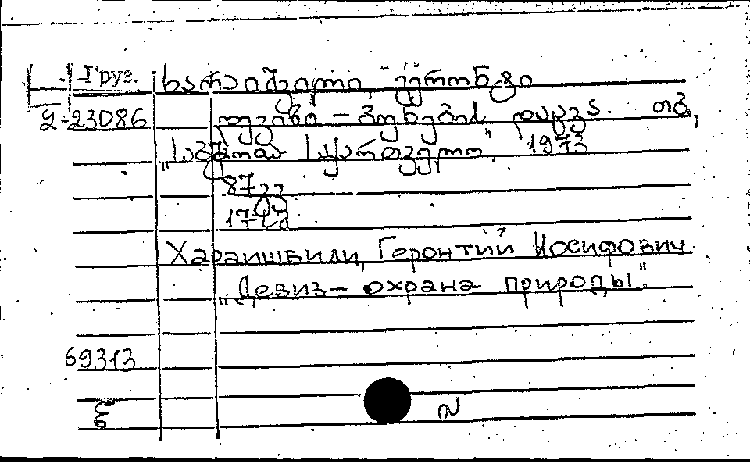 Груз.
ხარაიშვილი, გერონტი
2-23086 დევიზი – ბუნების დაცვა. თბ.,
„საბჭოთა საქართველო“, 1973
87 გვ
17 სმ
Хараишвили, Геронтий Иосифович
„Девиз – охрана природы“.
69313